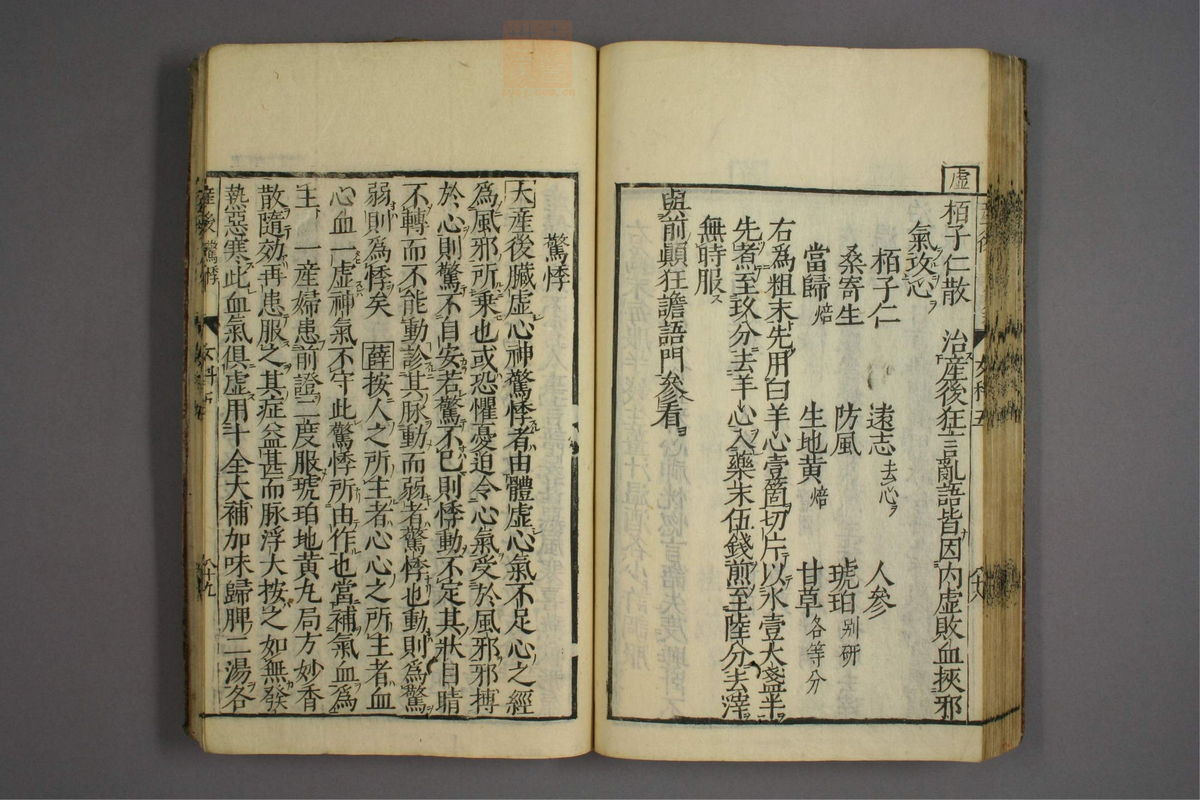 虛
栢子仁散 治產後狂言亂語皆因内虛敗血挾邪
氣攻心
栢子仁 遠志去心 人參
桑寄生 防風 琥珀別研
當歸焙 生地黃焙 甘草各等分
右爲粗末先用白羊心壹箇切片以水壹大盞半
先煮至玖分去羊心入藥末伍錢煎至陸分去滓
無時服ス
與前顚狂譫語門參看
驚悸
大產後臟虛心神驚悸者由體虛心氣不足心之經
爲風邪所乗也或恐懼憂迫令心氣受於風邪邪搏
於心則驚不自安若驚不已則悸動不定其狀目睛
不轉而不能動診其脉動而弱者驚悸也動則爲驚
弱則爲悸矣 薛按人之所主者心心之所主者血
心血一虛神氣不守此驚悸所由作也當補氣血爲
主 一產婦患前證二度服琥珀地黃丸局方妙香
散隨効再患服之其症益甚而脉浮大按之如無發
熱惡寒此血氣俱虛用十全大補加味歸脾二湯各
產後 驚悸
八十九